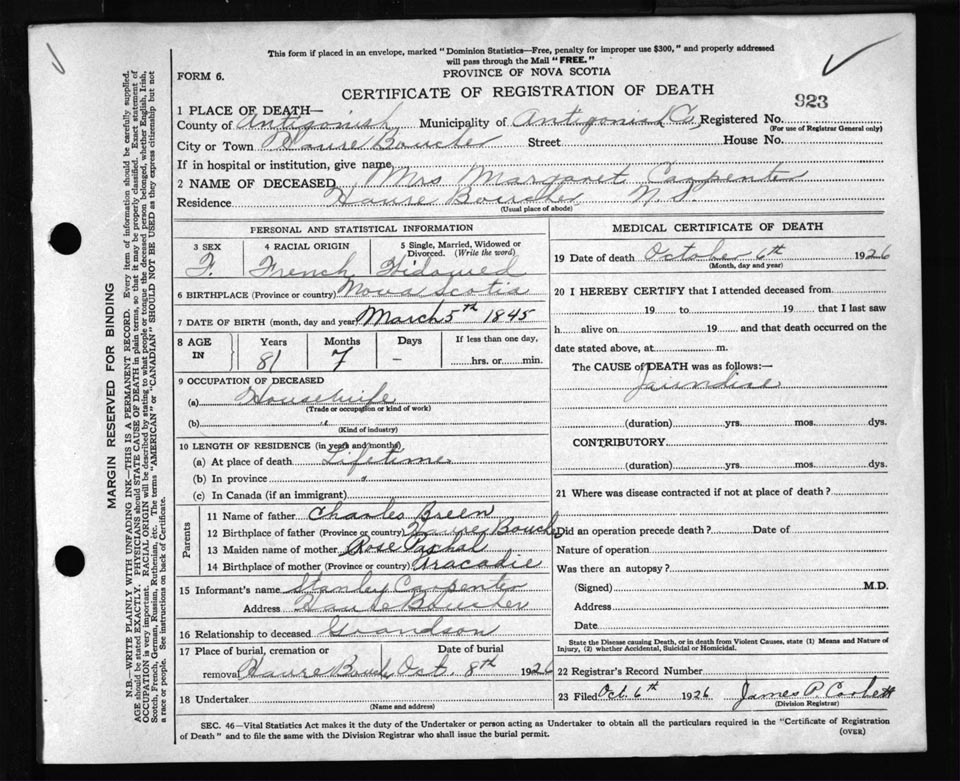 This form if placed in an envelope, marked "Dominion Statistics—Free, penalty for improper use $300," and properly addressed
will pass through the Mail "FREE."
FORM 6.
PROVINCE OF NOVA SCOTIA
CERTIFICATE OF REGISTRATION OF DEATH
923
1 PLACE OF DEATH—
County of Antigonish Municipality of Antigonish Co. Registered No.
(For use of Registrar General only)
City or Town Havre Boucher Street House No.
If in hospital or institution, give name
2 NAME OF DECEASED Mrs Margaret Carpenter
Residence Havre Boucher N.S.
(Usual place of abode)
PERSONAL AND STATISTICAL INFORMATION
3 SEX 4 RACIAL ORIGIN 5 Single, Married, Widowed or Divorced. (Write the word)
F. French Widowed
6 BIRTHPLACE (Province or country) Nova Scotia
7 DATE OF BIRTH (month, day and year) March 5th 1845
8 AGE IN Years Months Days If less than one day,
81 7 – hrs. or min.
9 OCCUPATION OF DECEASED
(a) Housewife
(Trade or occupation or kind of work)
(b) "
(Kind of industry)
10 LENGTH OF RESIDENCE (in years and months)
(a) At place of death Lifetime
(b) In province "
(c) In Canada (if an immigrant)
Parents
11 Name of father Charles Breen
12 Birthplace of father (Province or country) Havre Boucher
13 Maiden name of mother Rose Pashal
14 Birthplace of mother (Province or country) Aracadie
15 Informant's name Stanley Carpenter
Address Havre Boucher
16 Relationship to deceased Grandson
17 Place of burial, cremation or removal Date of burial
Havre Bouch Oct. 8th 1926
18 Undertaker
(Name and address)
MEDICAL CERTIFICATE OF DEATH
19 Date of death October 6th 1926
(Month, day and year)
20 I HEREBY CERTIFY that I attended deceased from
19 to 19 that I last saw
h alive on 19 and that death occurred on the
date stated above, at m.
The CAUSE of DEATH was as follows:—
Jaundise
(duration) yrs. mos. dys.
CONTRIBUTORY
(duration) yrs. mos. dys.
21 Where was disease contracted if not at place of death?
Did an operation precede death? Date of
Nature of operation
Was there an autopsy?
(Signed) M.D.
Address
Date
State the Disease causing Death, or in death from Violent Causes, state (1) Means and Nature of
Injury, (2) whether Accidental, Suicidal or Homicidal.
22 Registrar's Record Number
23 Filed Oct. 6th 1926 James P. Corbett
(Division Registrar)
SEC. 46—Vital Statistics Act makes it the duty of the Undertaker or person acting as Undertaker to obtain all the particulars required in the "Certificate of Registration
of Death" and to file the same with the Division Registrar who shall issue the burial permit.
(OVER)
MARGIN RESERVED FOR BINDING
N.B.—WRITE PLAINLY WITH UNFADING INK—THIS IS A PERMANENT RECORD. Every item of information should be carefully supplied.
AGE should be stated EXACTLY. PHYSICIANS should STATE CAUSE OF DEATH in plain terms, so that it may be properly classified. Exact statement of
OCCUPATION is very important. RACIAL ORIGIN will be described by stating to what people or tongue the deceased person belonged, whether English, Irish,
Scotch, French, German, Russian, Ruthenian, etc. The terms "AMERICAN" or "CANADIAN" SHOULD NOT BE USED as they express citizenship but not
a race or people. See instructions on back of Certificate.